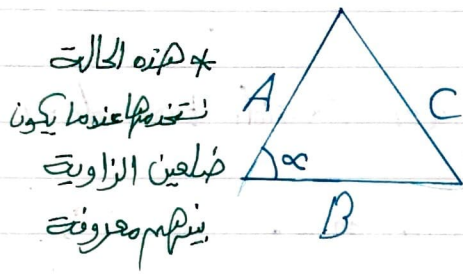 * هذه الحالة
نستخدمها عندما يكون
ضلعين الزاوية
بينهم معروفة
A
C
α
B